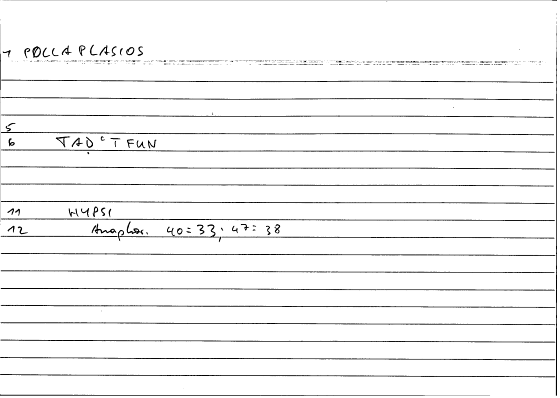 1 POLLAPLASIOS
5
6 TAḌʿĪFUN
11 HYPSI
12 Anaphor. 40 = 33; 47 = 38